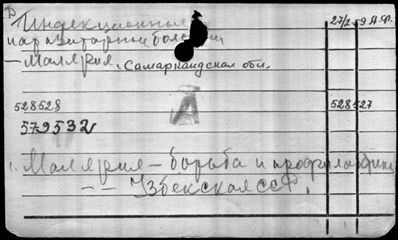 Инфекционные 27/2-59 А.Ф.
паразитарные болезни
—малярия, Самаркандская обл.
А
528528 528527
579532
1. Малярия—борьба и профилактика
—— Узбекская ССР.